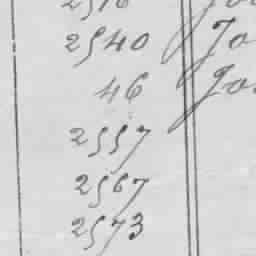 2540 Jo
46
2557
2567
2573